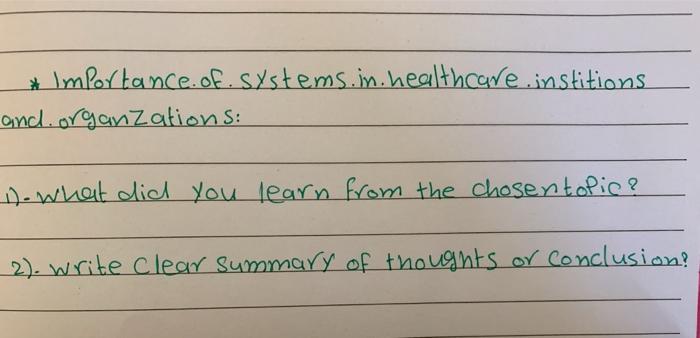 * Importance.of.systems.in.healthcare.institions
and.organzations:
1)- what did you learn from the chosen topic?
2)- write clear summary of thoughts or conclusion?